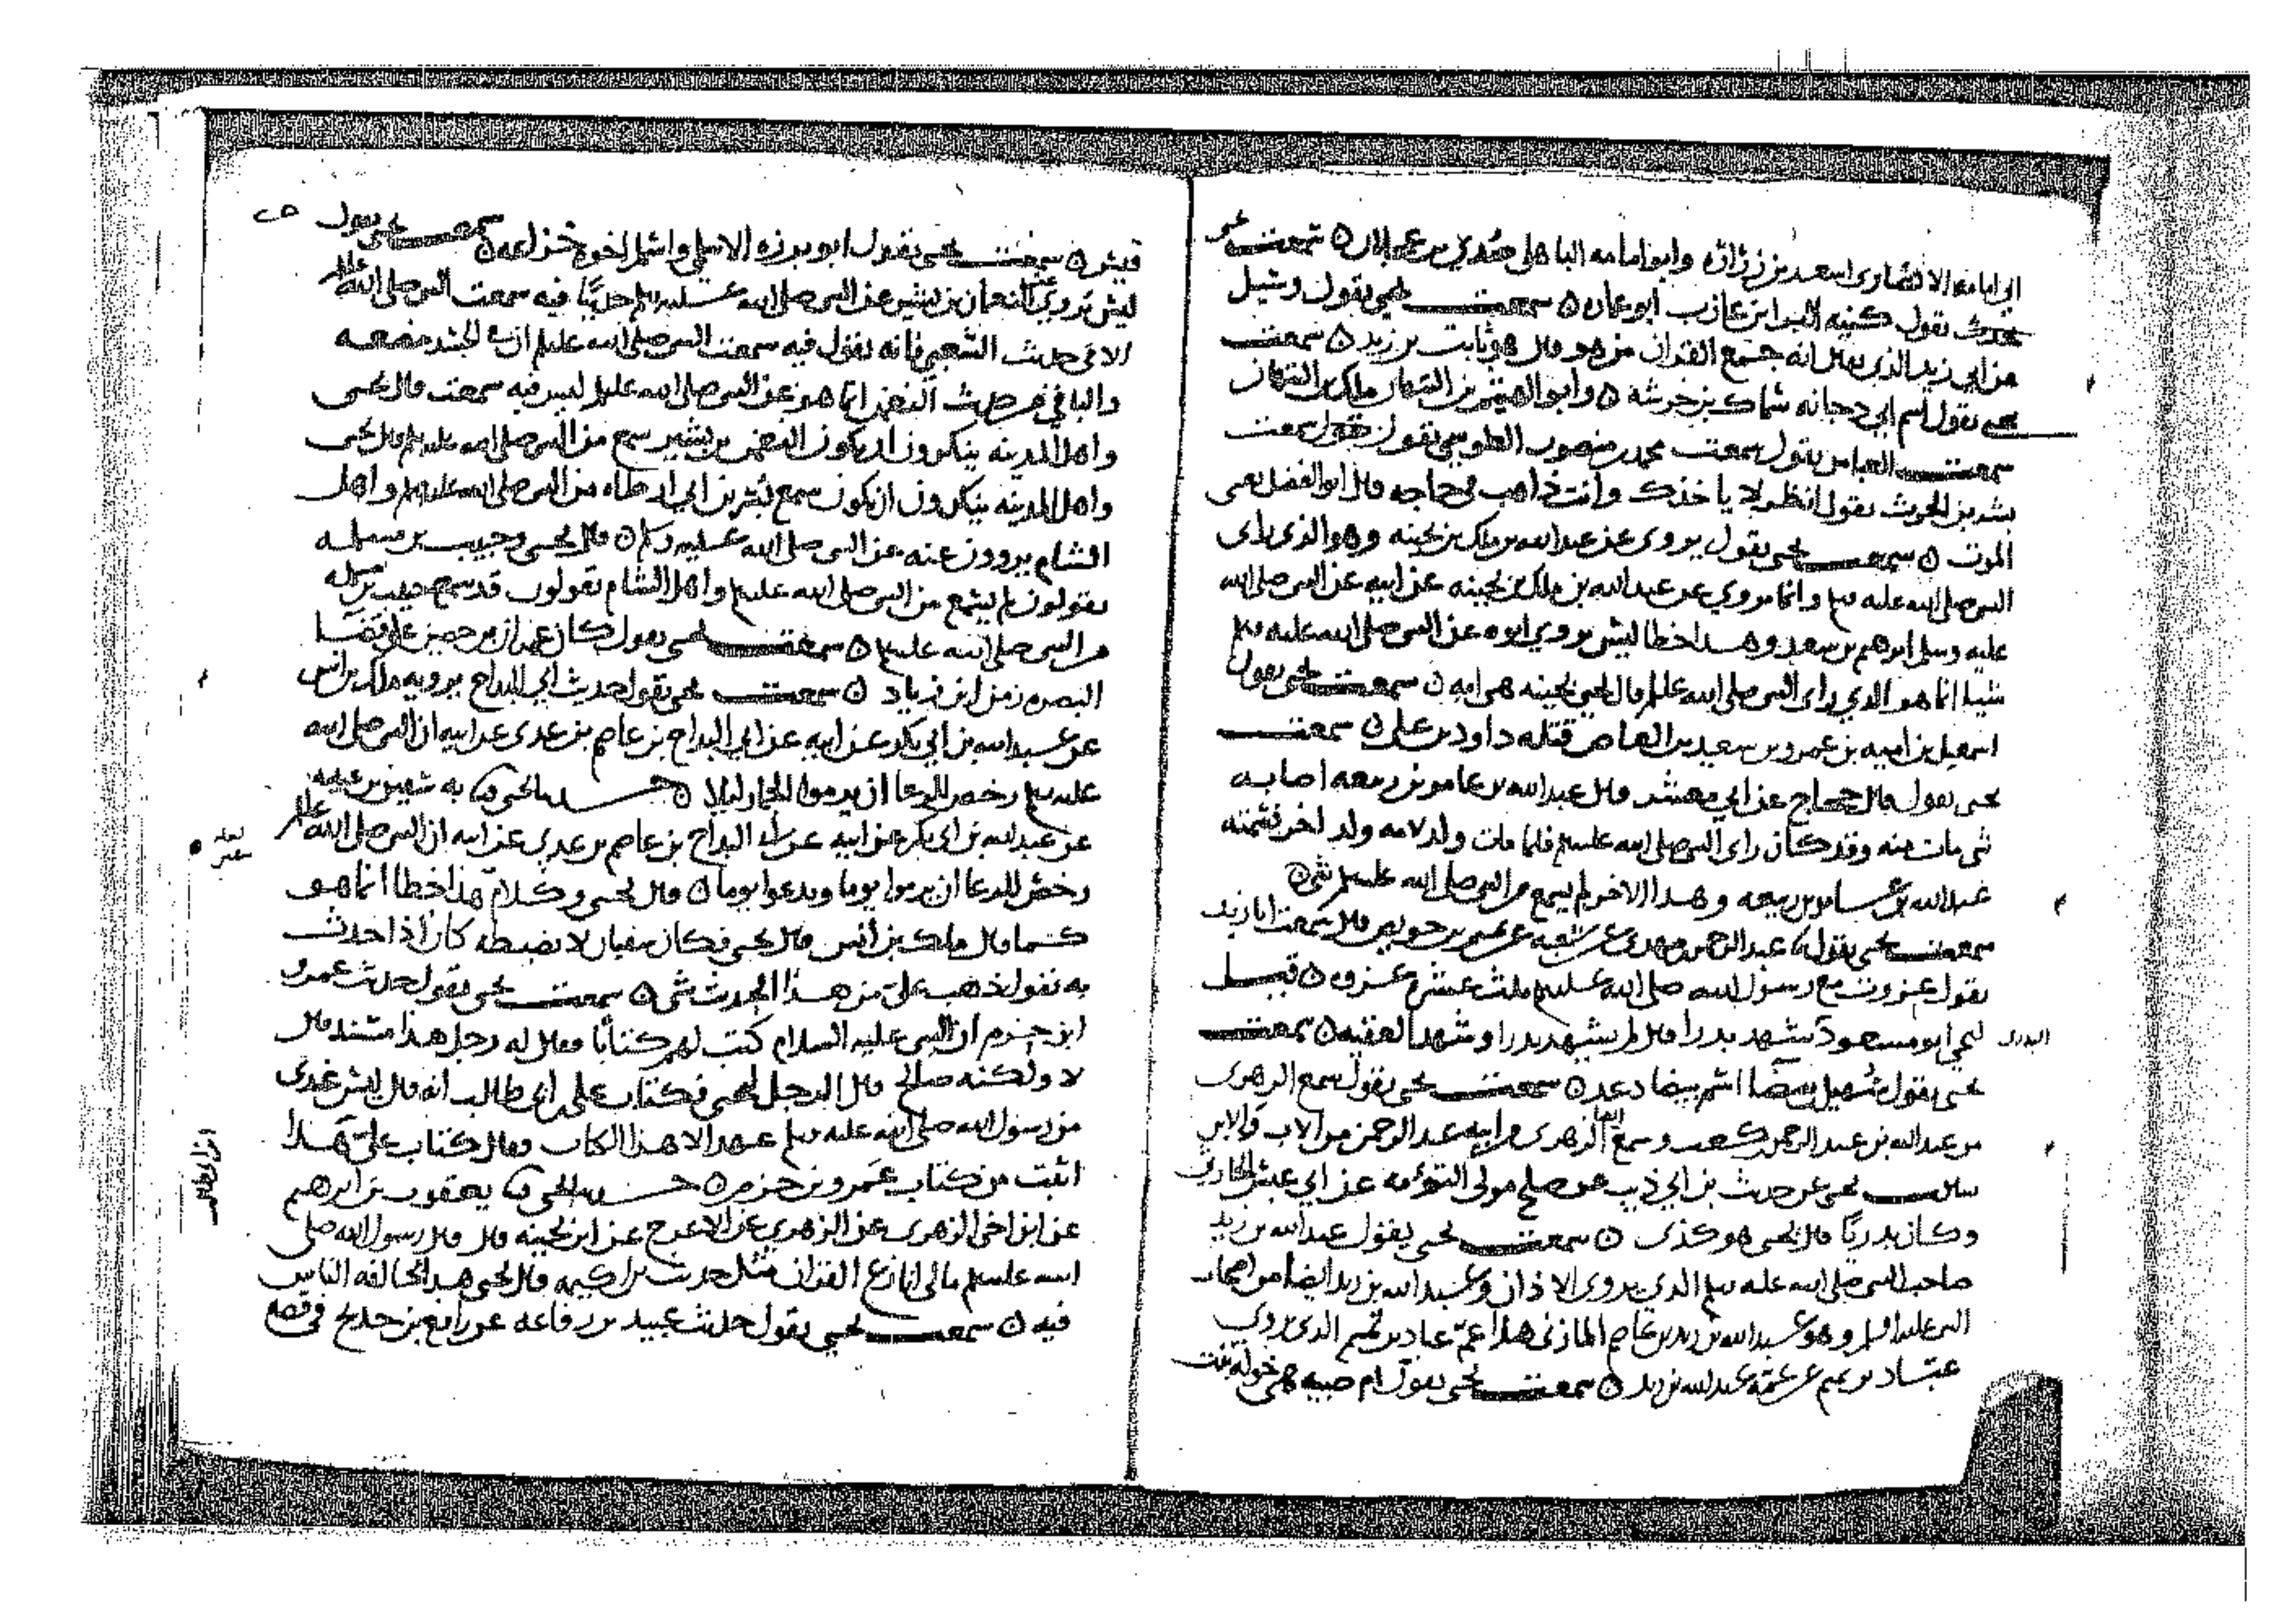 ابي امامه الانصاري اسعد بن زراره وابو امامه الباهلي صدي بن عجلان سمعت
يقول كنيه البرا بن عازب ابو عماره سمعت يحيى يقول وسئل
عن ابي زيد الذي يقال انه جمع القران من هو قال هو ثابت بن زيد سمعت
يحيى يقول اسم ابي دجانه سماك بن خرشه وابو الهيثم بن التيهان ملك بن التيهان
سمعت العباس يقول سمعت محمد بن منصور الطوسي يقول سمعت
بشر بن الحرث يقول انظر لا ياخذك وانت ذاهب في حاجه قال ابو الفضل يعني
الموت سمعت يحيى يقول يروى عن عبد الله بن ملك بن بحينه وهو الذي راى
النبي صلى الله عليه وسلم وانما يروي عن عبد الله بن ملك بن بحينه عن ابيه عن النبي صلى الله
عليه وسلم ابرهيم بن سعد وهذا خطا ليس يروي ابوه عن النبي صلى الله عليه وسلم
شيا انما هو الذي راى النبي صلى الله عليه وسلم قال يحيى بحينه هي امه سمعت يحيى يقول
اسمعيل بن اميه بن عمرو بن سعيد بن العاص قتله داود بن علي سمعت
يحيى يقول قال حجاج عن ابي معشر قال عبد الله بن عامر بن ربيعه اصابه
شي مات منه وقد كان راى النبي صلى الله عليه وسلم فلما مات ولد لامه ولد اخر فسمته
عبد الله بن عامر بن ربيعه وهذا الاخر لم يسمع من النبي صلى الله عليه وسلم شي
سمعت يحيى يقول عبد الرحمن بن مهدي عن شعبه عن تميم بن حويص قال سمعت ابا زيد
يقول غزوت مع رسول الله صلى الله عليه وسلم ثلث عشره غزوه قيل
ليحيى ابو مسعود شهد بدرا قال لم يشهد بدرا وشهد العقبه سمعت
البدري
يحيى يقول سهيل بن بيضا اسم بيضا دعد سمعت يحيى يقول سمع الزهري
من عبد الله بن عبد الرحمن بن كعب وسمع الزهري ايضا من ابيه عبد الرحمن من الاب والابن
سالت يحيى عن حديث بن ابي ذيب عن صلح مولى التومه عن ابي عبس الحارثي
وكان بدريا قال يحيى هو كذى سمعت يحيى يقول عبد الله بن زيد
صاحب النبي صلى الله عليه وسلم الذي يروي الاذان وعبد الله بن زيد ايضا من اصحاب
النبي عليه السلم وهو عبد الله بن زيد بن عاصم المازني هذا عم عباد بن تميم الذي يروي
عباد بن تميم عن عمه عبد الله بن زيد سمعت يحيى يقول ام صبيه هي خوله بنت
قيس سمعت يحيى يقول ابو برزه الاسلمي واسلم اخوه خزاعه سمعت يحيى يقول
ليس يروي النعمان بن بشير عن النبي صلى الله عليه وسلم حديثا فيه سمعت النبي صلى الله عليه وسلم
الا في حديث الشعبي فانه يقول فيه سمعت النبي صلى الله عليه وسلم ان في الجسد مضغه
والباقي من حديث النعمن انما هو عن النبي صلى الله عليه وسلم ليس فيه سمعت قال يحيى
واهل المدينه ينكرون ان يكون النعمن بن بشير سمع من النبي صلى الله عليه وسلم قال يحيى
واهل المدينه ينكرون ان يكون سمع بسر بن ابي ارطاه من النبي صلى الله عليه وسلم واهل
الشام يروون عنه عن النبي صلى الله عليه وسلم قال يحيى وحبيب بن مسلمه
يقولون لم يسمع من النبي صلى الله عليه وسلم واهل الشام يقولون قد سمع حبيب بن مسلمه
من النبي صلى الله عليه وسلم سمعت يحيى يقول كان عمران بن حصين على قضا
البصره زمن ابن زياد سمعت يحيى يقول حديث ابي البداح يرويه ملك بن انس
عن عبد الله بن ابي بكر عن ابيه عن ابي البداح بن عاصم بن عدي عن ابيه ان النبي صلى الله
عليه وسلم رخص للرعا ان يرموا الجمار ليلا حدثنا يحيى به سفين بن عيينه
عن عبد الله بن ابي بكر عن ابيه عن ابي البداح بن عاصم بن عدي عن ابيه ان النبي صلى الله عليه وسلم
رخص للرعا ان يرموا يوما ويدعوا يوما قال يحيى وكلام هذا خطا انما هو
كما قال ملك بن انس قال يحيى فكان سفيان لا يضبطه كان اذا حدث
به يقول ذهب علي من هذا الحديث شي سمعت يحيى يقول حديث عمرو
ابن حزم ان النبي عليه السلام كتب لهم كتابا فقال له رجل هذا مسند قال
لا ولكنه صالح قال الرجل ليحيى فكتاب علي بن ابي طالب انه قال ليس عندي
من رسول الله صلى الله عليه وسلم عهد الا هذا الكتاب وقال كتاب علي هذا
اثبت من كتاب عمرو بن حزم حدثنا يحيى يعقوب بن ابرهيم
عن ابن اخي الزهري عن الزهري عن الاعرج عن ابن بحينه قال قال رسول الله صلى
الله عليه وسلم مالي انازع القران مثل حديث بن اكيمه قال يحيى هذا يخالفه الناس
فيه سمعت يحيى يقول حديث عبيد بن رفاعه عن رافع بن خديج في قصه